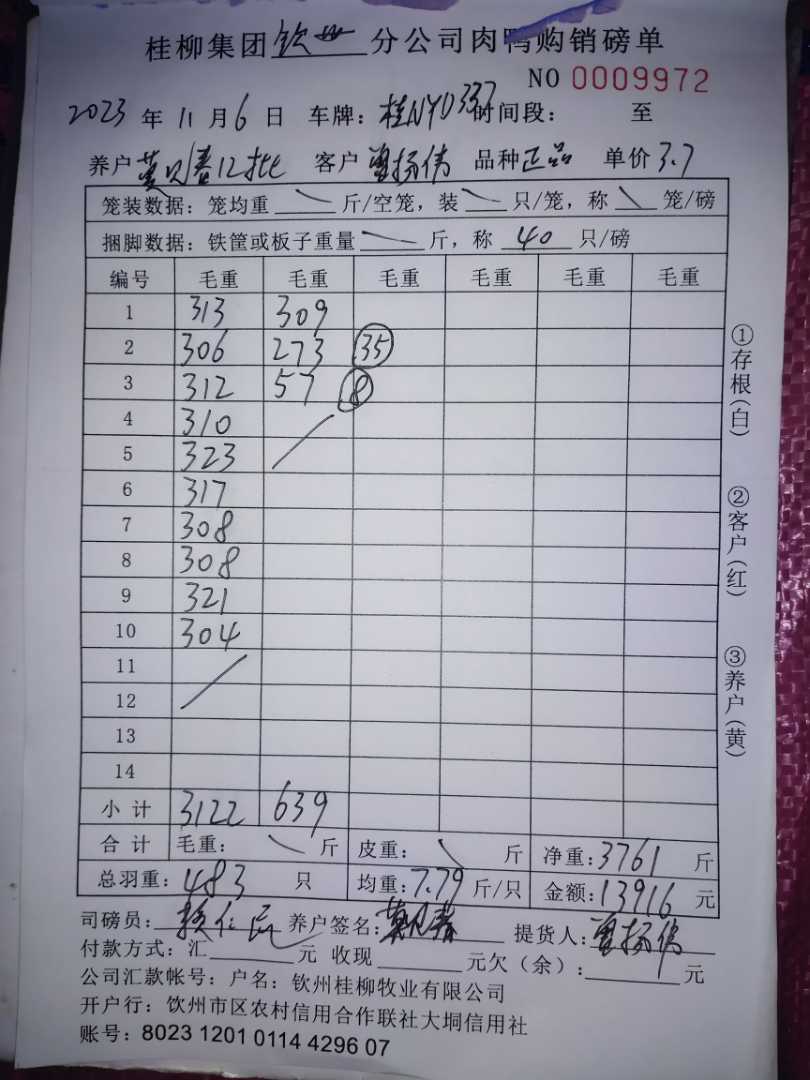 桂柳集团钦州分公司肉鸭购销磅单
NO 0009972
2023年11月6日 车牌：桂NYD337 时间段： 至
养户 12批 客户 曾扬伟 品种 正品 单价 3.7
笼装数据：笼均重 斤/空笼，装 只/笼，称 笼/磅
捆脚数据：铁筐或板子重量 斤，称 40 只/磅
编号 毛重 毛重 毛重 毛重 毛重 毛重
1 313 309
2 306 273 35
3 312 57 8
4 310
5 323
6 317
7 308
8 308
9 321
10 304
11
12
13
14
小计 3122 639
合计 毛重： 斤 皮重： 斤 净重：3761 斤
总羽重：483 只 均重：7.79 斤/只 金额：13916 元
司磅员： 养户签名： 提货人：曾扬伟
付款方式：汇 元 收现 元欠（余）： 元
公司汇款帐号：户名：钦州桂柳牧业有限公司
开户行：钦州市区农村信用合作联社大垌信用社
账号：8023 1201 0114 4296 07
①存根（白）
②客户（红）
③养户（黄）